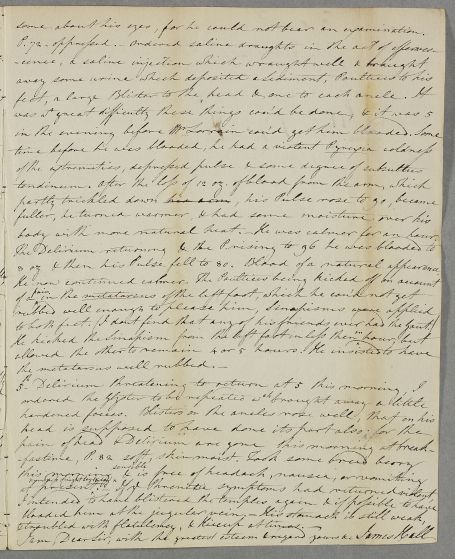 some about his eyes, for he could not bear an examination.
P. 72. oppressed. Ordered saline draughts in the act of efferves-
-cence, a saline injection which wrought well & brought
away some urine which deposited a sediment, Poultices to his
feet, a large Blister to the head & one to each ancle. It
was wt great difficulty these things could be done, & it was 5
in the evening before Mr Lorrain could get him blooded. Some
time before he was blooded, he had a violent Pyrexia coldness
of the extremities, depressed pulse & some degree of subsultus
tendinum. After the loss of 12 oz. of blood from the arm, which
partly trickled down his arm, his Pulse rose to 90, became
fuller, he turned warmer, & had some moisture over his
body with more natural heat. He was calmer for an hour,
The Delirium returning & the P. rising to 96 he was blooded to
8 oz & then his Pulse fell to 80. Blood of a natural appearance
He now continued calmer. The Poultices being kicked off on account
of a pain in the metatarsus of the left foot, which he could not get
rubbed well enough to please him, Sinapisms were applied
to both feet. (I dont find that any of his friends ever had the Gout)
He kicked the Sinapism from the left foot in less than hour, but
allowed the other to remain 4 or 5 hours. He insisted to have
the metatarsus well rubbed.
5th Delirium threatening to return at 5 this morning, I
ordered the Glyster to be repeated wch brought away a little
hardened foeces. Blisters on the ancles rose well, that on his
head is supposed to have done its part also: for the
pain of head & Delirium are gone this morning at break-
fastime, P. 82 soft, skin moist. Took some bread berry
this morning & is free of headach, nausea, or vomiting
If Phrenetic symptoms had returned
intended to have blistered the temples again & if possible to have
blooded him at the jugular vein. His stomach is still weak,
& troubled with flatulency, & hiccup at times.
I am, Dear Sir, with the greatest esteem & regard yours &c. James Hall